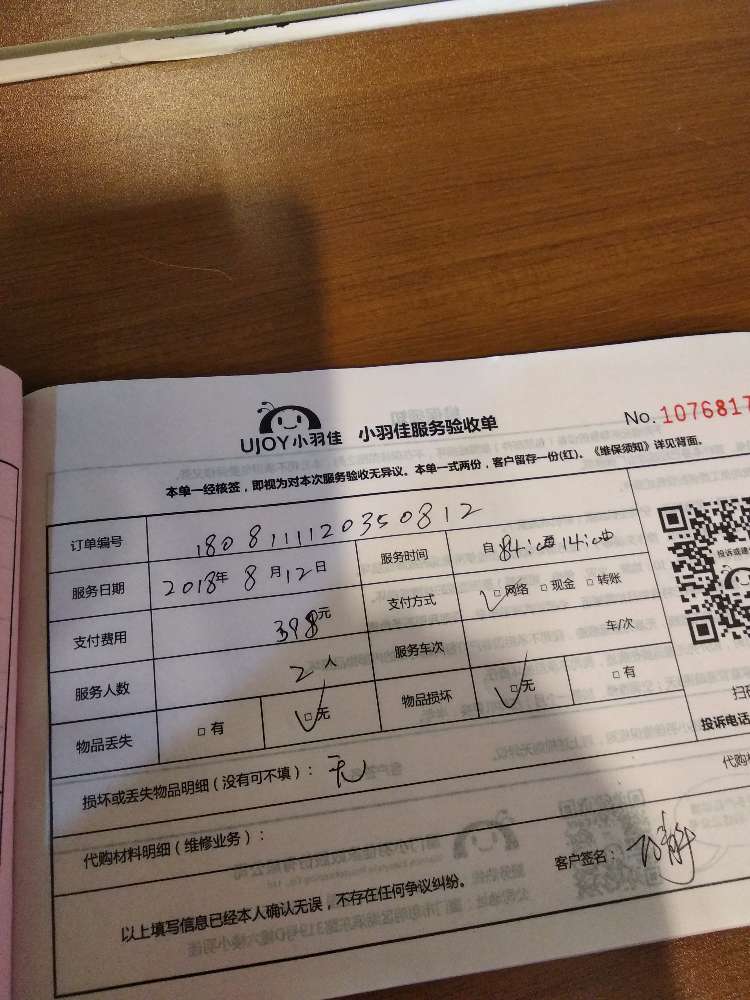 UJOY小羽佳 小羽佳服务验收单 No. 1076817
本单一经核签，即视为对本次服务验收无异议。本单一式两份，客户留存一份(红)。《维保须知》详见背面。
订单编号 1808111120350812 服务时间 自
服务日期 2018年 8月12日 支付方式 □网络 □现金 □转账
支付费用 398元 服务车次 车/次
服务人数 2人 物品损坏 □无 □有
物品丢失 □有 □无
投诉电话
损坏或丢失物品明细（没有可不填）：无
代购材料明细（维修业务）：
客户签名：
以上填写信息已经本人确认无误，不存在任何争议纠纷。